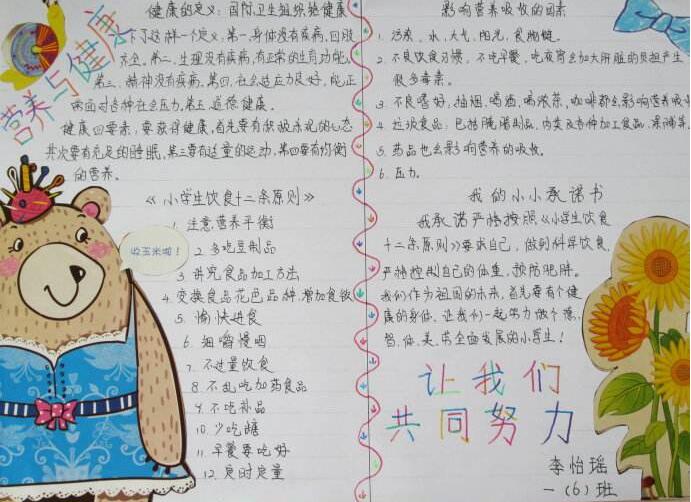 营养与健康
健康的定义：国际卫生组织给健康
下了这样一个定义：第一.身体没有疾病，四肢
齐全。第二、生理没有疾病，有正常的生育功能。
第三、精神没有疾病。第四、社会适应良好，能正
确面对各种社会压力。第五.道德健康。
健康四要素：要获得健康，首先要有积极乐观的心态
其次要有充足的睡眠，第三要有适量的运动，第四要有均衡
的营养。
《小学生饮食十二条原则》
1. 注意营养平衡
2. 多吃豆制品
3. 讲究食品加工方法
4. 交换食品花色品种，增加食欲
5. 愉快进食
6. 细嚼慢咽
7. 不过量饮食
8. 不乱吃加药食品
9. 不吃补品
10. 少吃糖
11. 早餐要吃好
12. 定时定量
收玉米啦！
影响营养吸收的因素
1. 污染、水、大气、阳光、食物链。
2. 不良饮食习惯，不吃早餐，吃夜宵会加大肝脏的负担产生
很多毒素。
3. 不良嗜好，抽烟、喝酒、喝浓茶、咖啡都会影响营养吸
4. 垃圾食品：包括腌腊制品，肉类及各种加工食品，果脯等
5. 药品也会影响营养的吸收。
6. 压力。
我的小小承诺书
我承诺严格按照《小学生饮食
十二条原则》要求自己，做到科学饮食，
严格控制自己的体重，预防肥胖。
我们作为祖国的未来，首先要有个健
康的身体，让我们一起努力做个德、
智、体、美、劳全面发展的小学生！
让我们
共同努力
李怡瑶
一（6）班